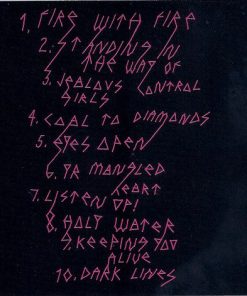 1. FIRE WITH FIRE
2. STANDING IN
THE WAY OF
CONTROL
3. JEALOUS
GIRLS
4. COAL TO DIAMONDS
5. EYES OPEN
6. YR MANGLED
HEART
7. LISTEN
UP!
8. HOLY WATER
9. KEEPING YOU
ALIVE
10. DARK LINES